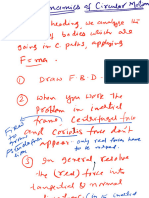 Dynamics of Circular Motion
heading, we analyse the
of bodies which are
going in C. paths, applying
F = ma.
① DRAW F.B.D.
② When you write the
problem in inertial
frame, Centrifugal force
and Coriolis force don't
appear. only real forces have
to be
③ In general, resolve
the (real) force into
tangential & normal